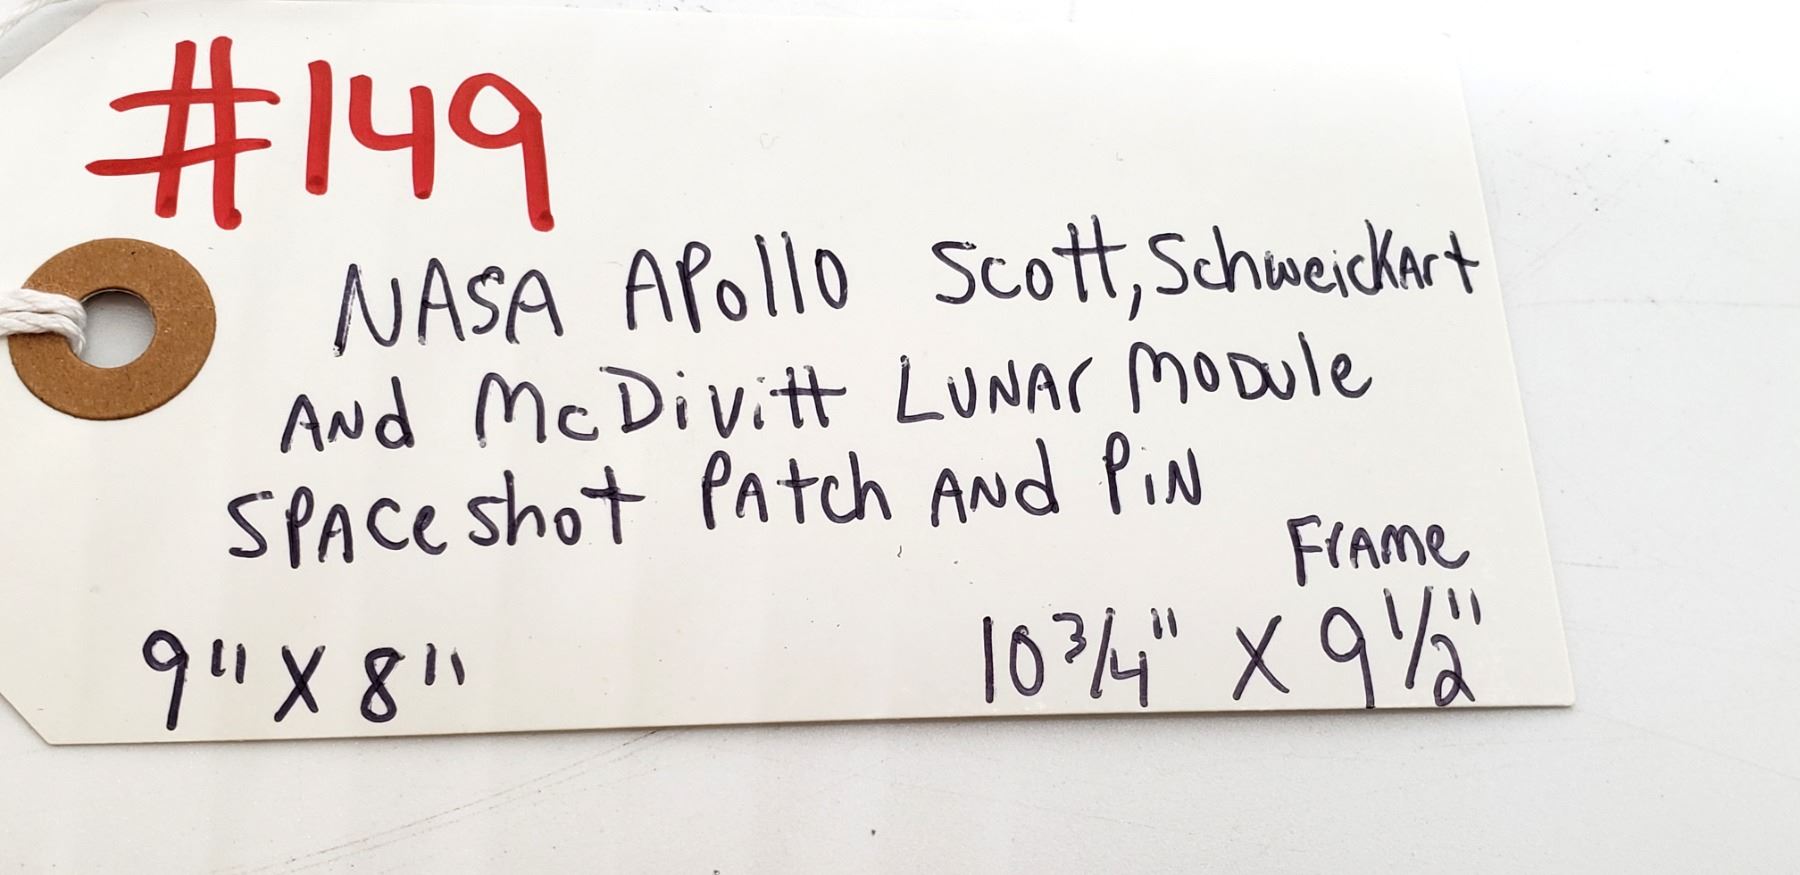 #149
NASA APollo Scott, SchweickArt
ANd McDivitt LUNAr MODule
SPAce shot PAtch ANd PiN
FrAMe
9" X 8" 10 3/4" X 9 1/2"